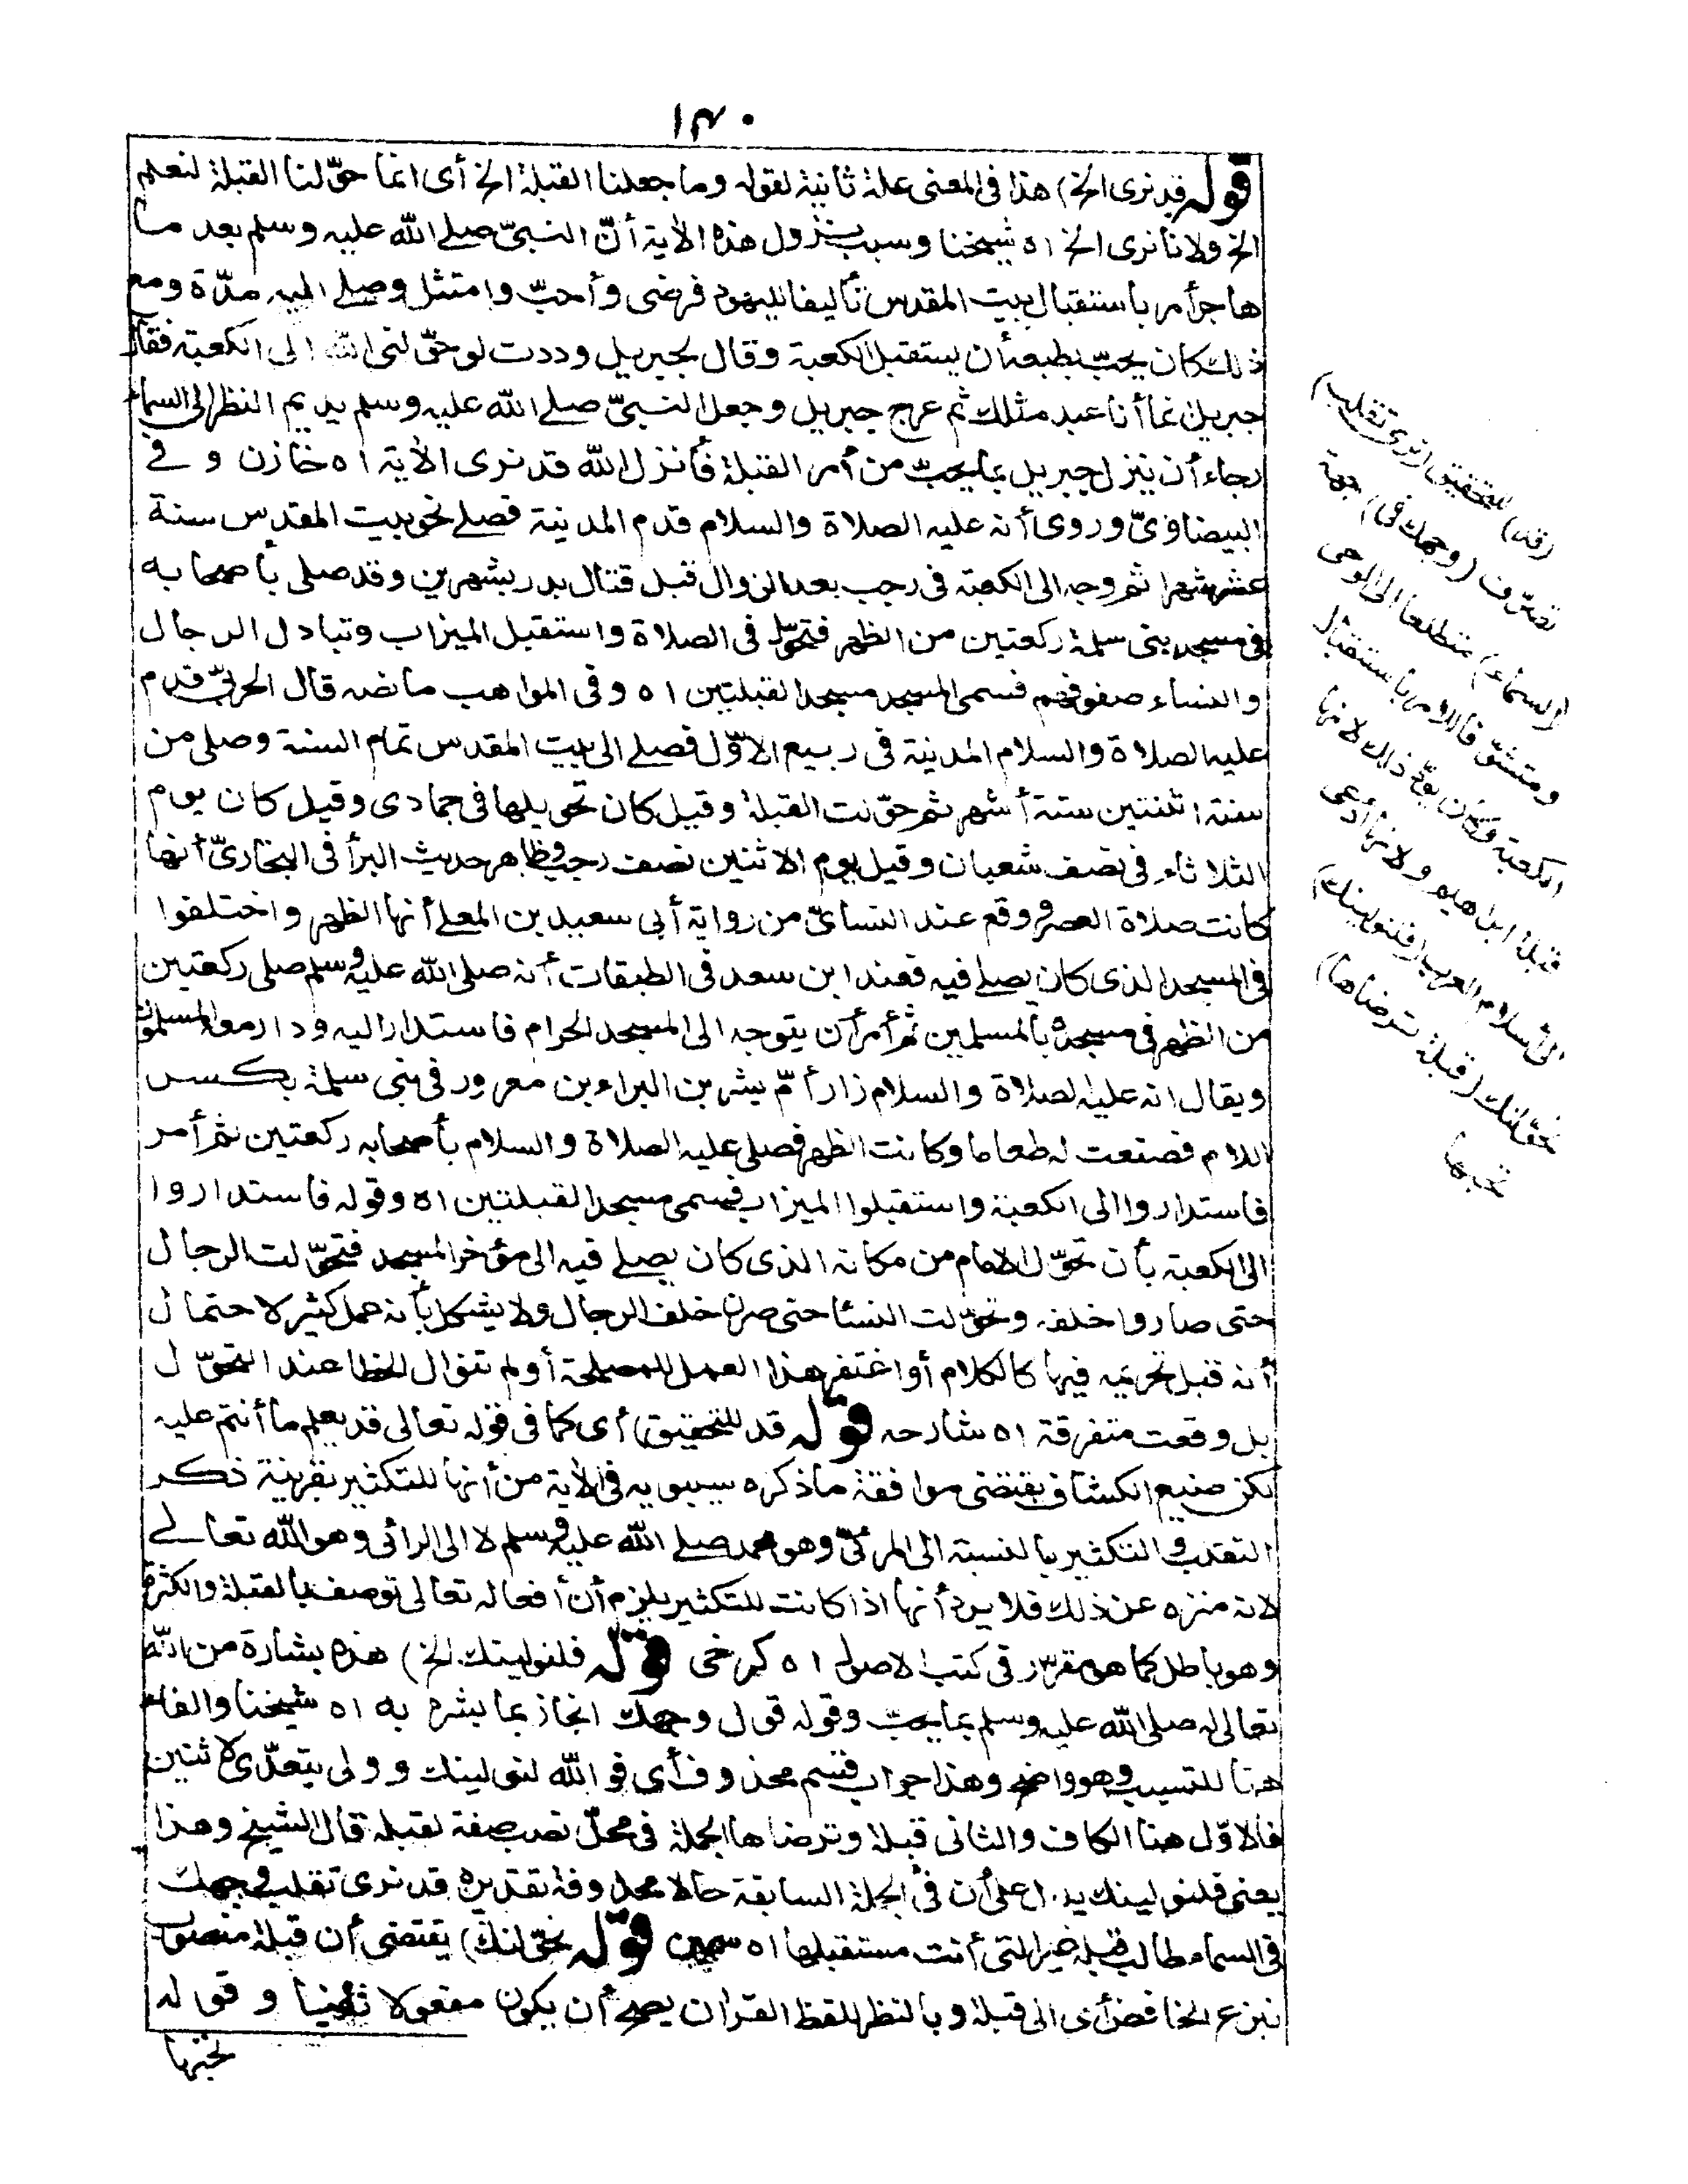 ١٣٠
قوله قد نرى الخ) هذا فى المعنى علة ثانية لقوله وما جعلنا القبلة الخ أى انما حوّلنا القبلة لنعلم
الخ ولاننا نرى الخ اه شيخنا وسبب نزول هذه الآية أنّ النبىّ صلى الله عليه وسلم بعد ما
هاجر أمر باستقبال بيت المقدس تأليفا لليهود فرضى وأحبّ وامتثل وصلى اليه مدّة ومع
ذلك كان يحبّ بطبعه أن يستقبل الكعبة وقال لجبريل وددت لو حوّلنى الله الى الكعبة فقال
جبريل انما أنا عبد مثلك ثم عرج جبريل وجعل النبىّ صلى الله عليه وسلم يديم النظر الى السماء
رجاء أن ينزل جبريل بما يحبّ من أمر القبلة فأنزل الله قد نرى الآية اه خازن وفى
البيضاوىّ وروى أنه عليه الصلاة والسلام قدم المدينة فصلى نحو بيت المقدس ستة
عشر شهرا ثم وجه الى الكعبة فى رجب بعد الزوال قبل قتال بدر بشهرين وقد صلى بأصحابه
فى مسجد بنى سلمة ركعتين من الظهر فتحوّل فى الصلاة واستقبل الميزاب وتبادل الرجال
والنساء صفوفهم فسمى المسجد مسجد القبلتين اه وفى المواهب ما نصه قال الحربىّ قدم
عليه الصلاة والسلام المدينة فى ربيع الاوّل فصلى الى بيت المقدس تمام السنة وصلى من
سنة اثنتين ستة أشهر ثم حوّلت القبلة وقيل كان تحويلها فى جمادى وقيل كان يوم
الثلاثاء فى نصف شعبان وقيل يوم الاثنين نصف رجب وظاهر حديث البرأ فى البخارىّ أنها
كانت صلاة العصر ووقع عند النسائىّ من رواية أبى سعيد بن المعلى أنها الظهر واختلفوا
فى المسجد الذى كان يصلى فيه فعند ابن سعد فى الطبقات أنه صلى الله عليه وسلم صلى ركعتين
من الظهر فى مسجده بالمسلمين ثم أمر أن يتوجه الى المسجد الحرام فاستدار اليه ودار معه المسلمون
ويقال انه عليه الصلاة والسلام زار أمّ بشر بن البراء بن معرور فى بنى سلمة بكسر
اللام فصنعت له طعاما وكانت الظهر فصلى عليه الصلاة والسلام بأصحابه ركعتين ثم أمر
فاستداروا الى الكعبة واستقبلوا الميزاب فسمى مسجد القبلتين اه وقوله فاستداروا
الى الكعبة بأن تحوّل الامام من مكانه الذى كان يصلى فيه الى مؤخر المسجد فتحوّلت الرجال
حتى صاروا خلفه وتحوّلت النساء حتى صرن خلف الرجال ولا يشكل بأنه عمل كثير لاحتمال
أنه قبل تحريمه فيها كالكلام أو اغتفر هذا العمل للمصلحة أو لم تتوال الخطا عند التحوّل
بل وقعت متفرقة اه شارحه قوله قد للتحقيق) أى كما فى قوله تعالى قد يعلم ما أنتم عليه
لكن صنيع الكشاف يقتضى موافقة ما ذكره سيبويه فى الآية من أنها للتكثير بقرينة ذكر
التقلب والتكثير بالنسبة الى المرئىّ وهو محمد صلى الله عليه وسلم لا الى الرائى وهو الله تعالى
لانه منزه عن ذلك فلا يرد أنها اذا كانت للتكثير يلزم أن أفعاله تعالى توصف بالقلة والكثرة
وهو باطل كما هو مقرّر فى كتب الاصول اه كرخى قوله فلنولينك الخ) هذه بشارة من الله
تعالى له صلى الله عليه وسلم بما يحبّ وقوله فول وجهك انجاز بما بشره به اه شيخنا والفاء
هنا للتسبب وهو واضح وهذا جواب قسم محذوف أى فو الله لنولينك وولى يتعدّى لاثنين
فالاوّل هنا الكاف والثانى قبلة وترضاها الجملة فى محلّ نصب صفة لقبلة قال الشيخ وهذا
يعنى فلنولينك يدل على أن فى الجملة السابقة حالا محذوفة تقديره قد نرى تقلب وجهك
فى السماء طالب قبلة غير التى أنت مستقبلها اه سمين قوله نحوّلنك) يقتضى أن قبلة منصوب
بنزع الخافض أى الى قبلة وبالنظر للفظ القرآن يصح أن يكون مفعولا ثانيا وقوله
تحبها
(قد) للتحقيق (نرى تقلب)
تصرّف (وجهك فى) جهة
(السماء) متطلعا الى الوحى
ومتشوّقا للامر باستقبال
الكعبة وكان يودّ ذلك لانها
قبلة ابراهيم ولانه أدعى
الى اسلام العرب (فلنولينك)
نحوّلنك (قبلة ترضاها)
تحبها